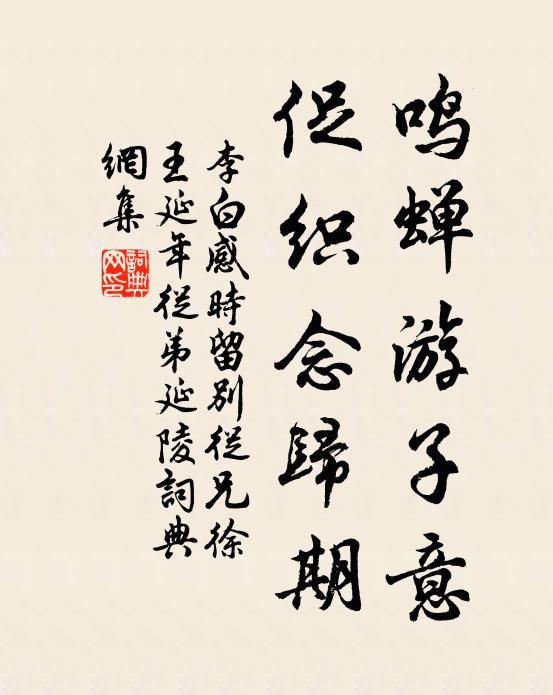 鸣蝉游子意
促织念歸期
李白感時留別從兄徐
王延年從弟延陵詞典
網集
詞典網印